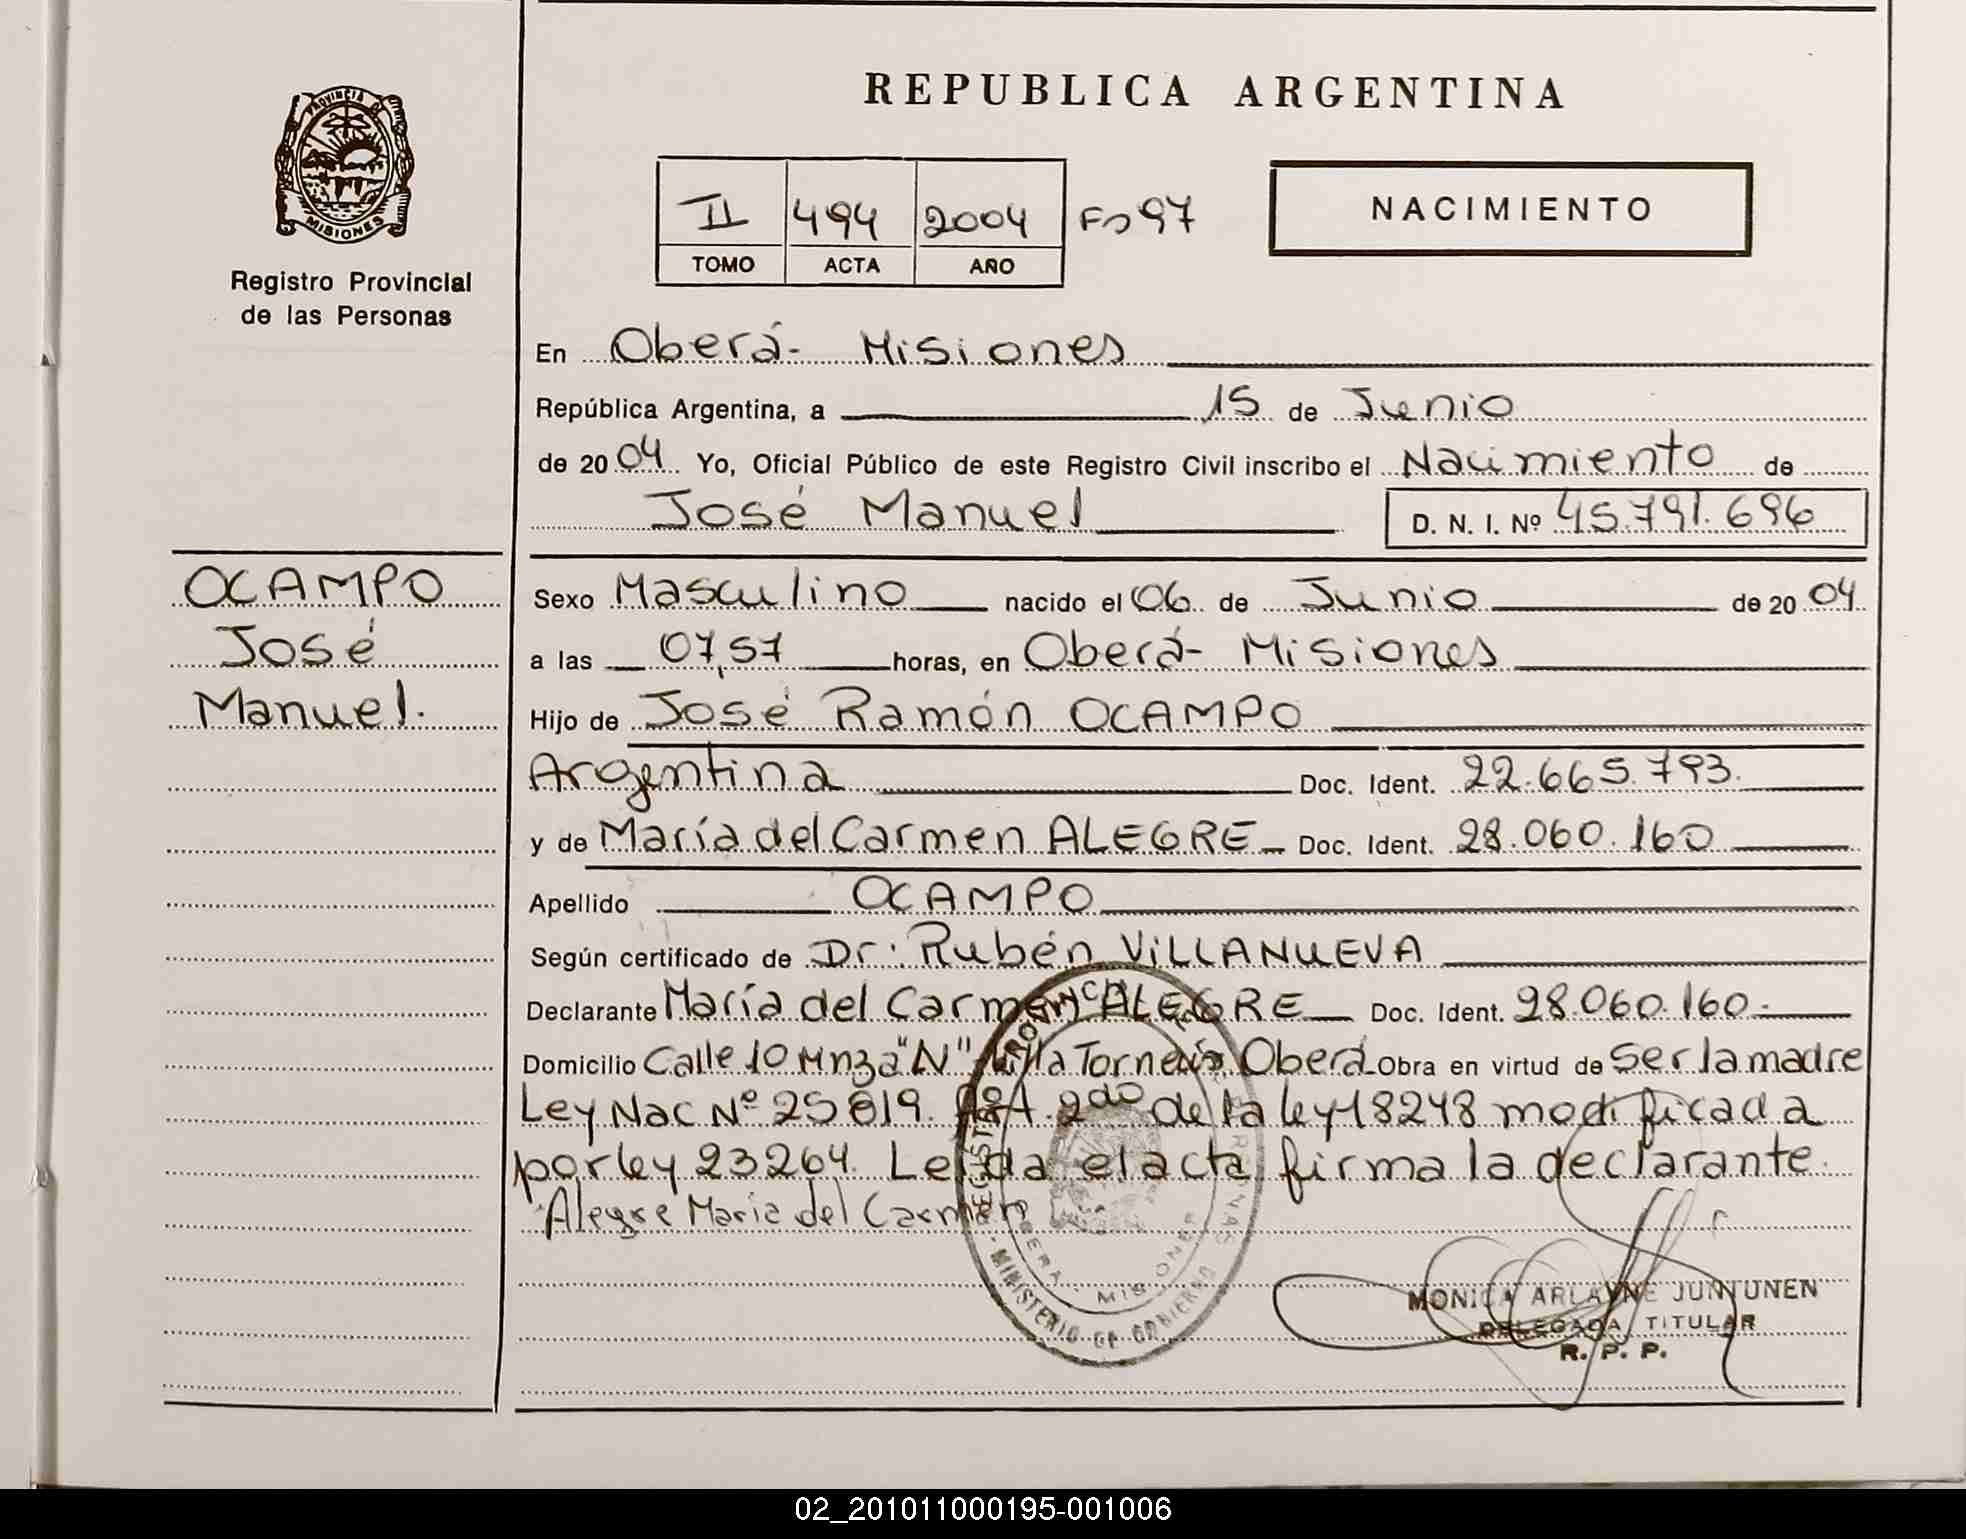 REPUBLICA ARGENTINA
PROVINCIA DE
MISIONES
Registro Provincial
de las Personas
II 494 2004 Fº 97
TOMO ACTA AÑO
NACIMIENTO
En Oberá - Misiones
República Argentina, a 15 de Junio
de 2004 Yo, Oficial Público de este Registro Civil inscribo el Nacimiento de
José Manuel D. N. I. Nº 45.791.696
OCAMPO
José
Manuel.
Sexo Masculino nacido el 06 de Junio de 2004
a las 07,57 horas, en Oberá - Misiones
Hijo de José Ramón OCAMPO
Argentina Doc. Ident. 22.665.793.
y de María del Carmen ALEGRE Doc. Ident. 28.060.160
Apellido OCAMPO
Según certificado de Dr. Rubén VILLANUEVA
Declarante María del Carmen ALEGRE Doc. Ident. 28.060.160.
Domicilio Calle 10 Mnza "N" Villa Oberá Obra en virtud de Ser la madre
Ley Nac Nº 25819. Art. 2do de la ley 18248 modificada
por ley 23264. Leida el acta firma la declarante.
Alegre Maria del Carmen
MINISTERIO DE GOBIERNO
OBERA - MISIONES
MONICA ARLAYNE JUNTUNEN
DELEGADA TITULAR
R. P. P.
02_201011000195-001006